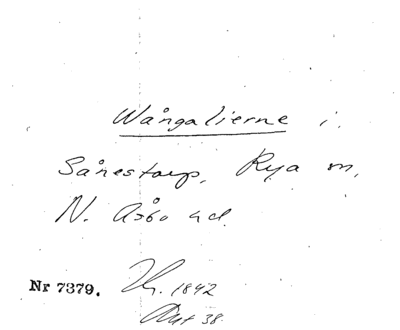 Wångalierne i
Sånestorp, Rya sn,
N. Åsbo hd.
Nr 7379.
1842
38.